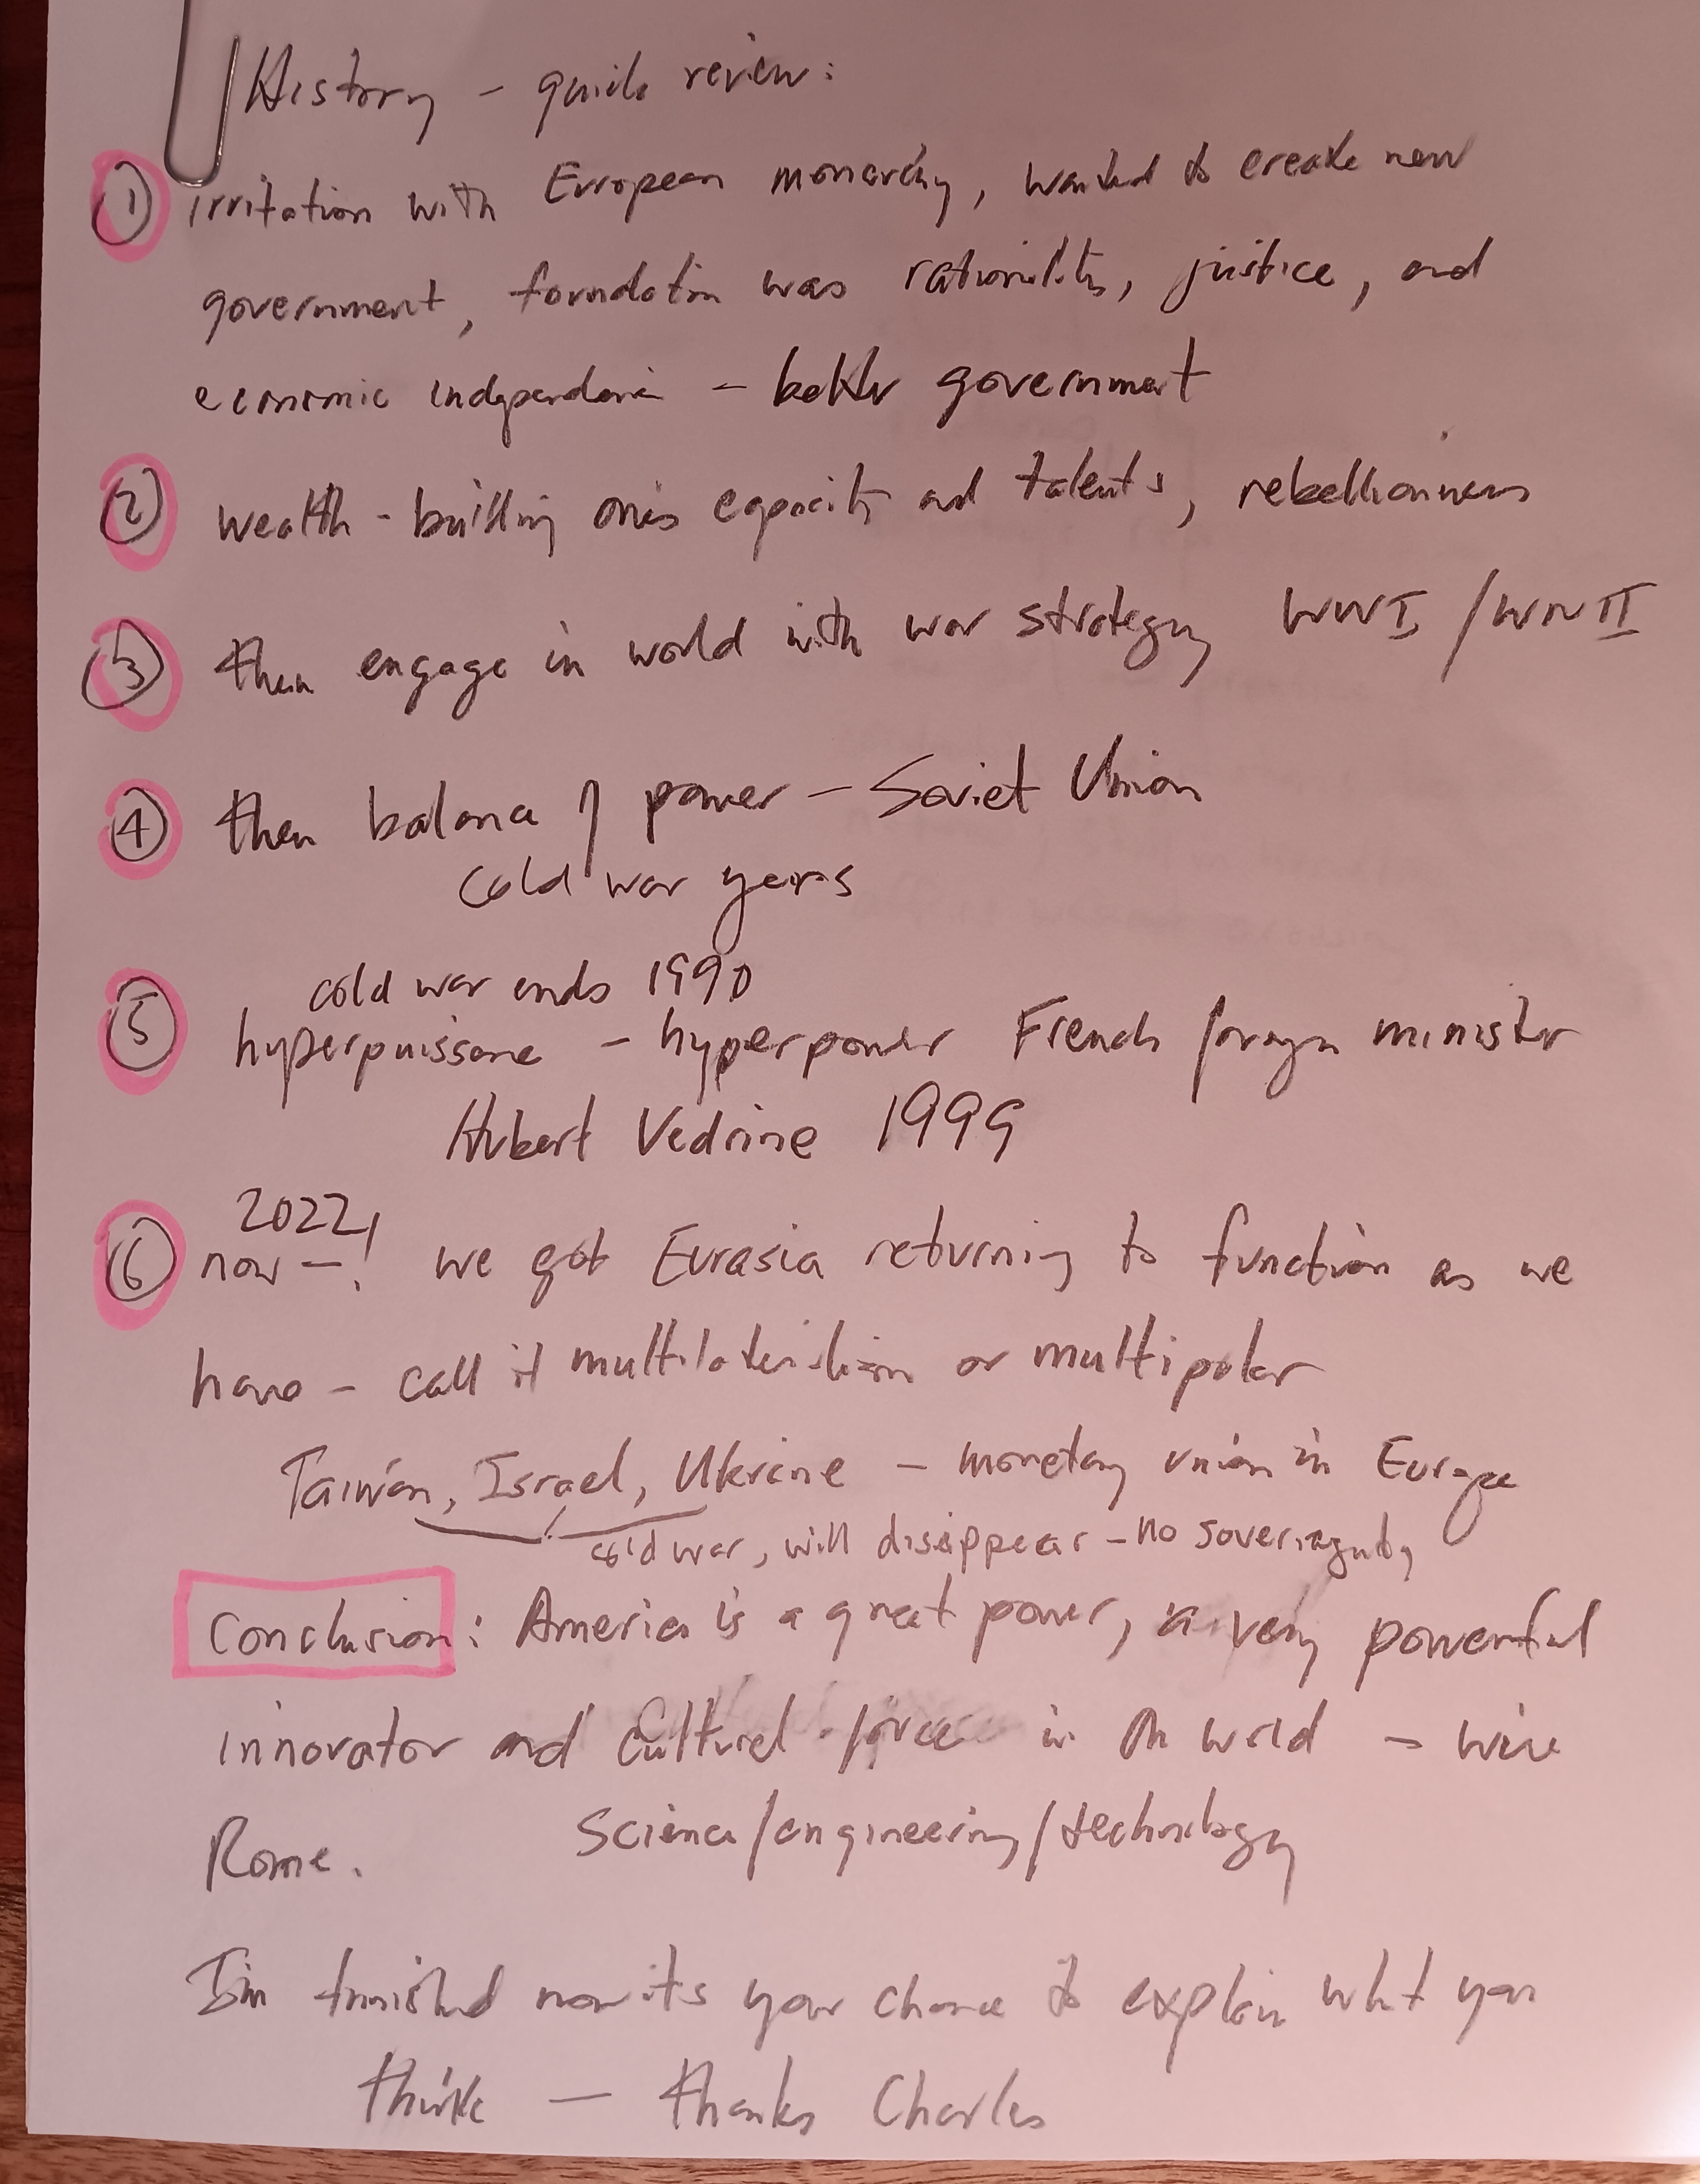 History - quick review:
① irritation with European monarchy, wanted to create new
government, foundation was rationality, justice, and
economic independence - better government
② wealth - building one's capacity and talents, rebelliousness
③ then engage in world with war strategy WWI / WWII
④ then balance of power - Soviet Union
cold war years
cold war ends 1990
⑤ hyperpuissance - hyperpower French foreign minister
Hubert Vedrine 1999
2022,
⑥ now -! we got Eurasia returning to function as we
have - call it multilateralism or multipolar
Taiwan, Israel, Ukraine - monetary union in Europe
cold war, will disappear - no soveriegnty
Conclusion: America is a great power, a very powerful
innovator and cultural force in the world - we're
Rome. Science/engineering/technology
I'm finished now its your chance to explain what you
think - thanks Charles